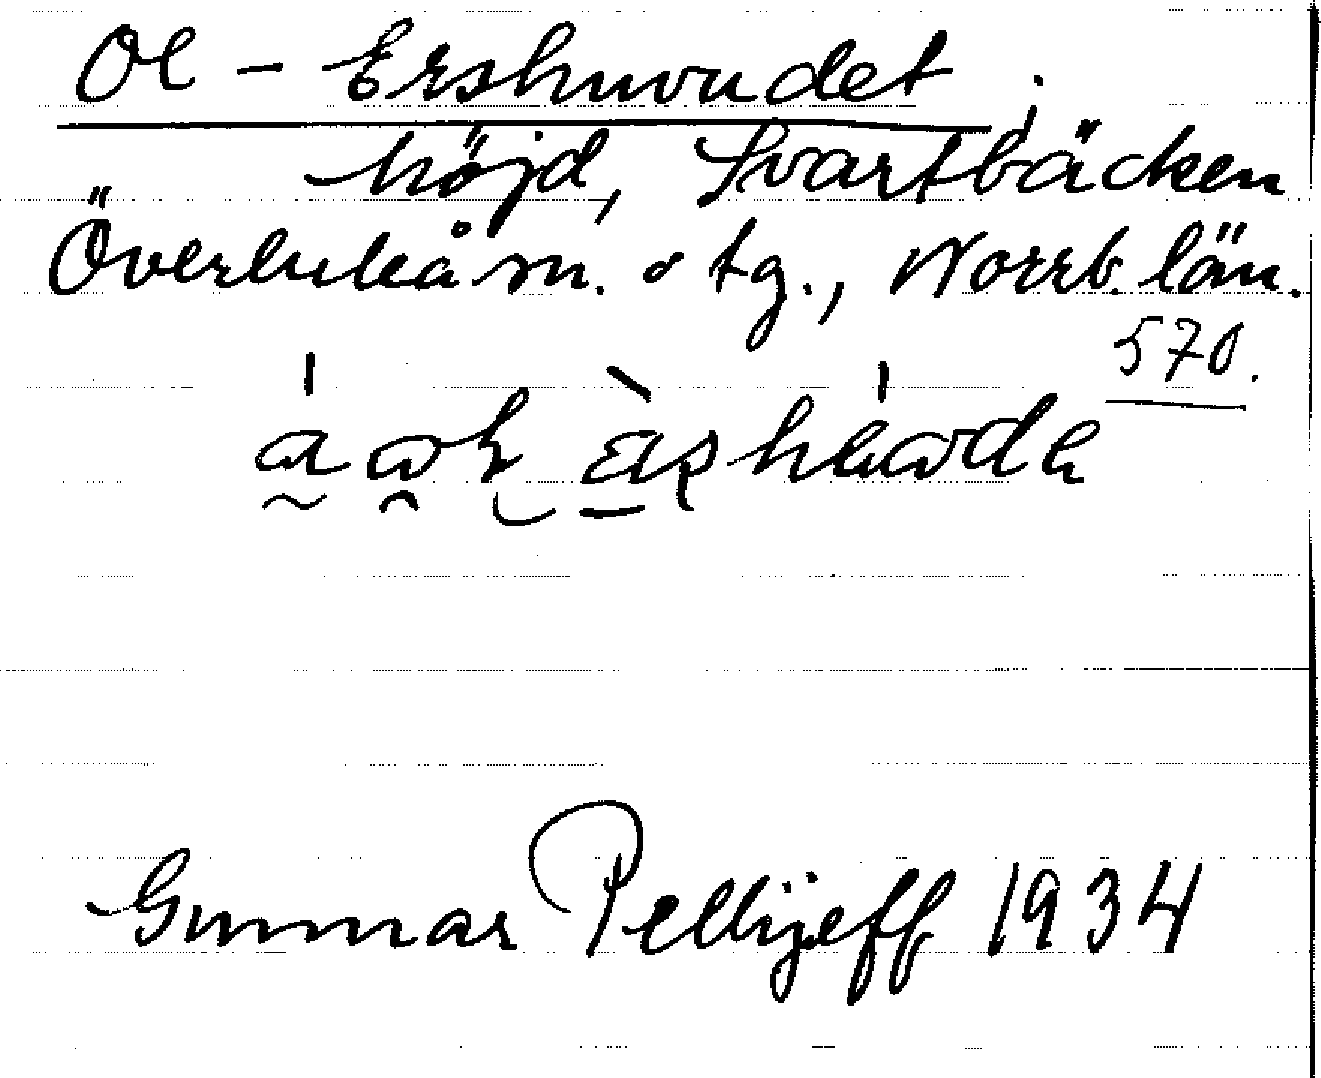 Ol-Ershuvudet,
höjd, Svartbäcken
Överluleå sn. o tg., Norrb. län.
570.
Gunnar Pellijeff 1934